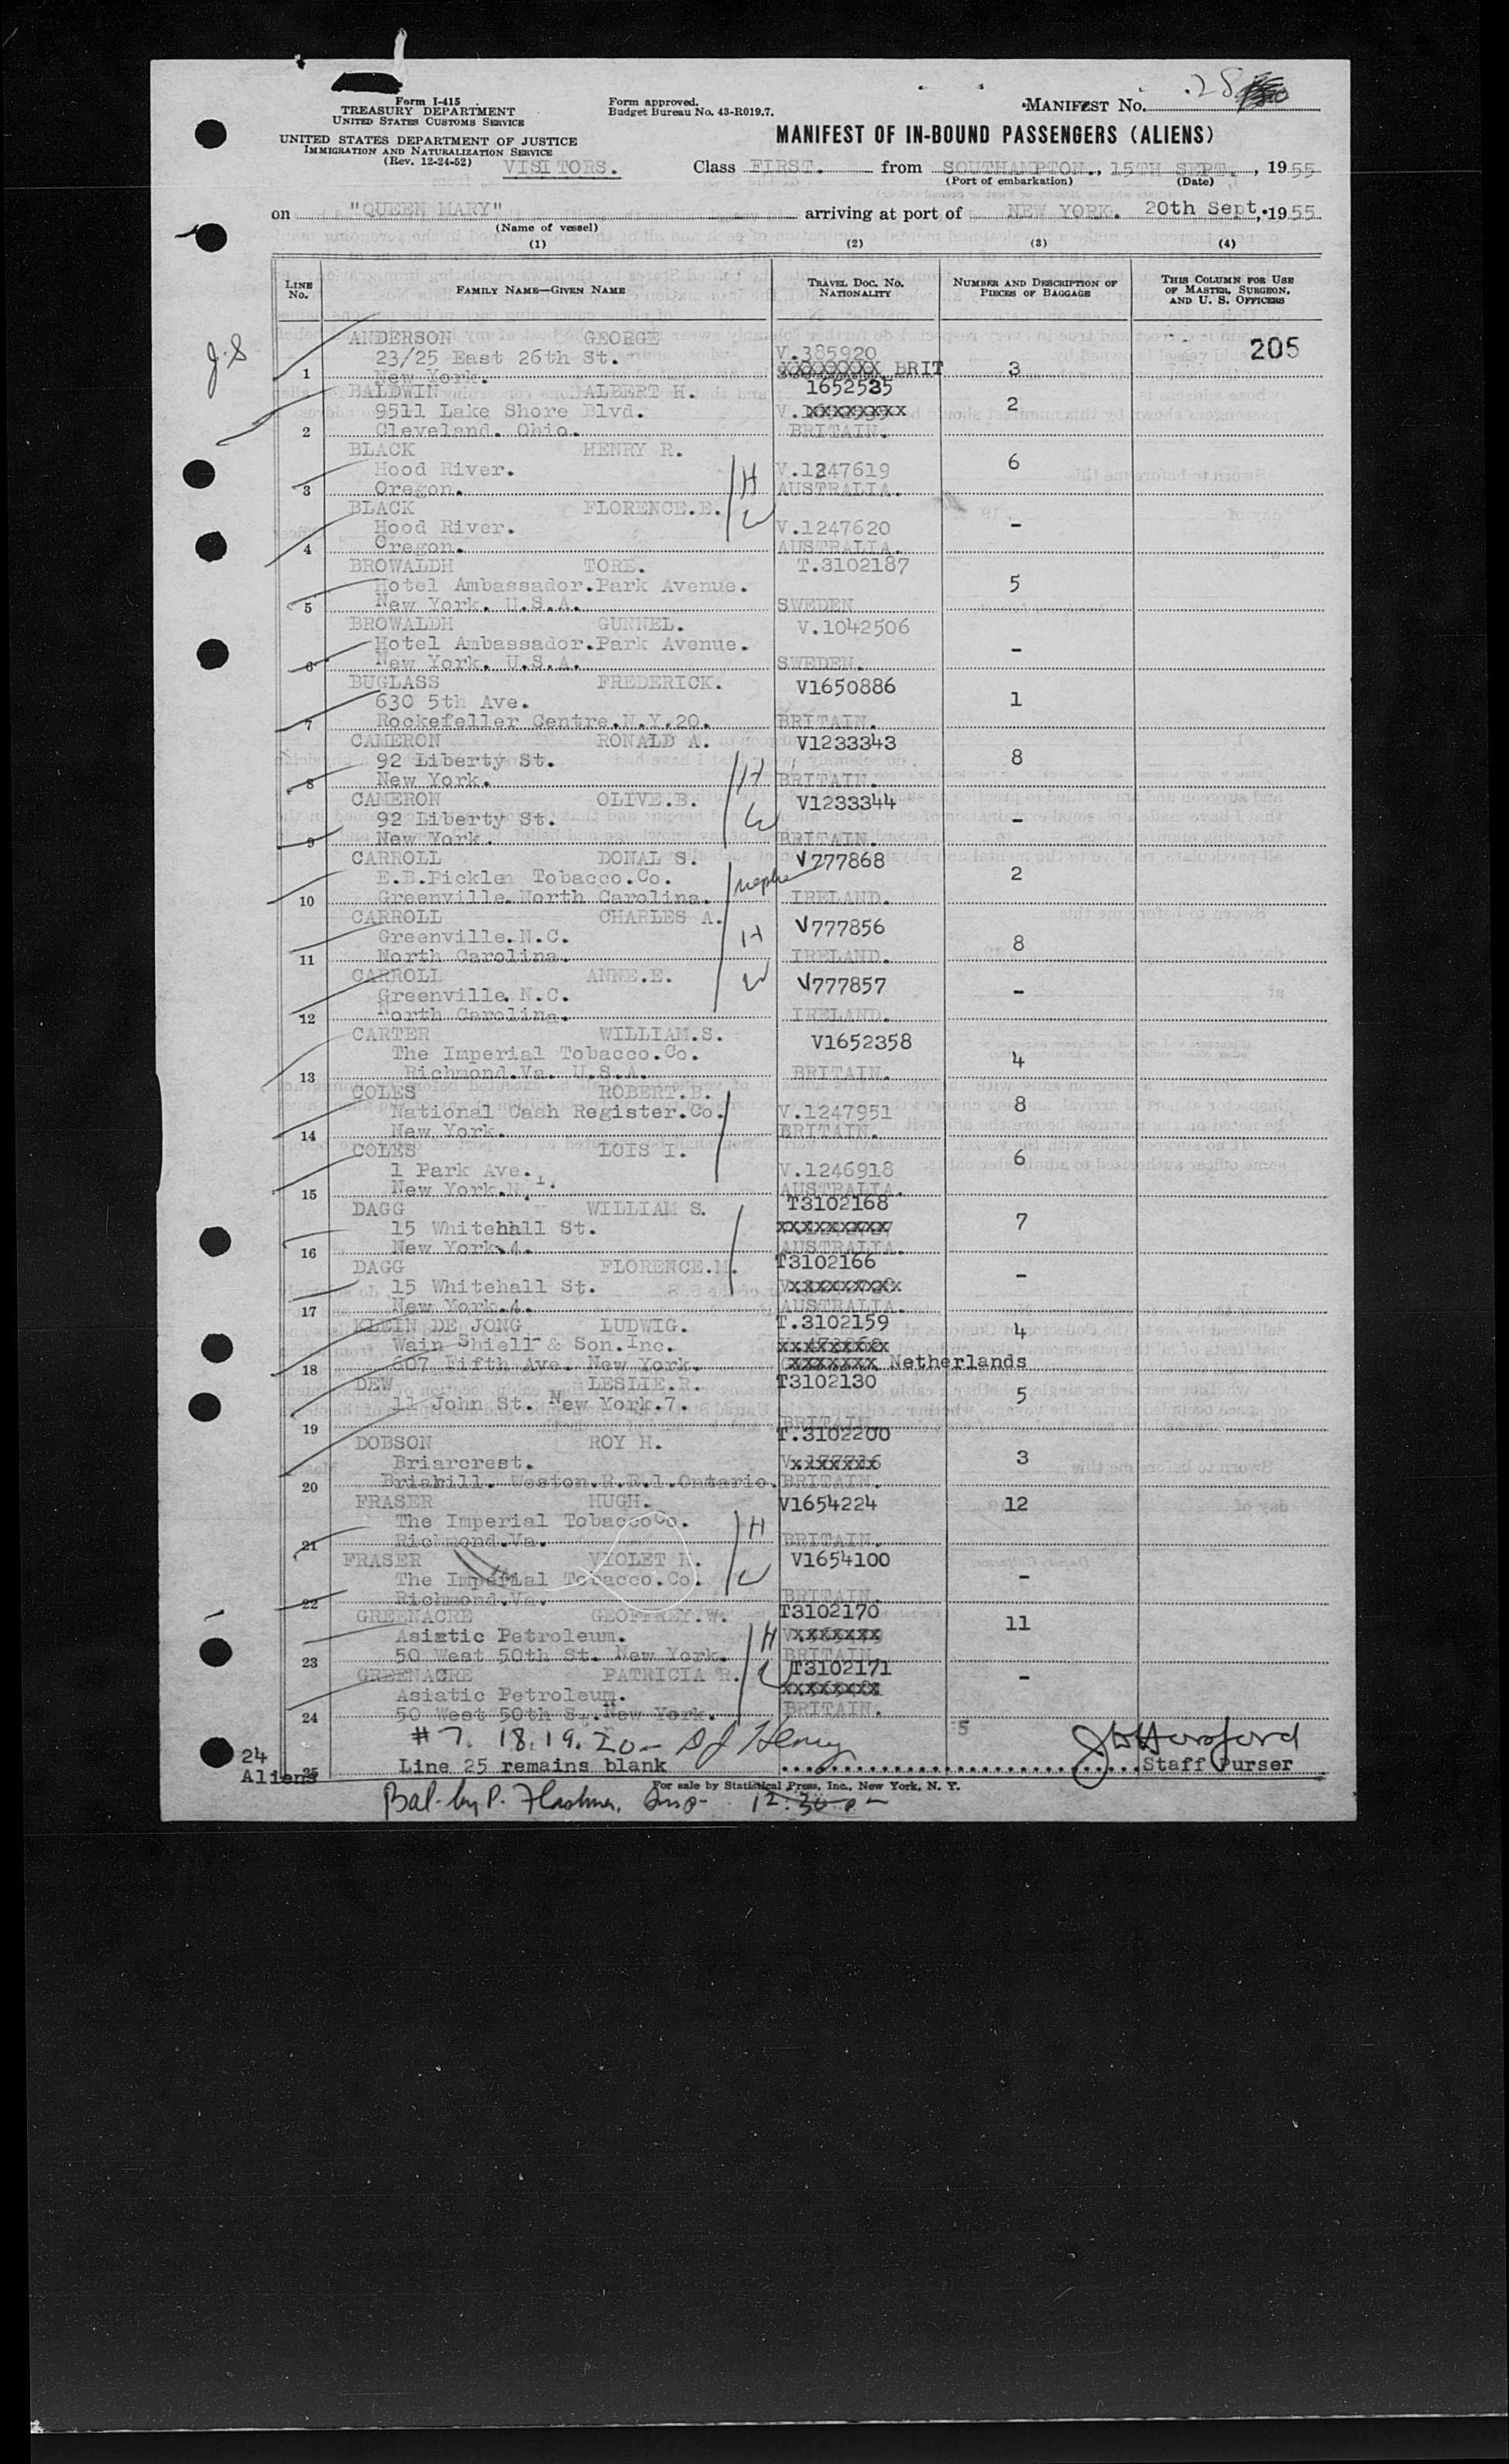 Form I-415
TREASURY DEPARTMENT
UNITED STATES CUSTOMS SERVICE
UNITED STATES DEPARTMENT OF JUSTICE
IMMIGRATION AND NATURALIZATION SERVICE
(Rev. 12-24-52)
VISITORS.
Form approved.
Budget Bureau No. 43-R019.7.
MANIFEST No. 28
MANIFEST OF IN-BOUND PASSENGERS (ALIENS)
Class FIRST. from SOUTHAMPTON., 15TH SEPT., 1955
(Port of embarkation) (Date)
on "QUEEN MARY" arriving at port of NEW YORK. 20th Sept, 1955
(Name of vessel)
(1) (2) (3) (4)
LINE No. FAMILY NAME—GIVEN NAME TRAVEL DOC. NO. NATIONALITY NUMBER AND DESCRIPTION OF PIECES OF BAGGAGE THIS COLUMN FOR USE OF MASTER, SURGEON, AND U. S. OFFICERS
J.S
205
ANDERSON GEORGE
23/25 East 26th St. V.385920
1 New York. XXXXXXXX BRIT 3
BALDWIN ALBERT H. 1652535
9511 Lake Shore Blvd. V.XXXXXXXX 2
2 Cleveland. Ohio. BRITAIN.
BLACK HENRY R.
Hood River. H V.1247619 6
3 Oregon. AUSTRALIA.
BLACK FLORENCE.E. W
Hood River. V.1247620 -
4 Oregon. AUSTRALIA.
BROWALDH TORE. T.3102187
Hotel Ambassador.Park Avenue. 5
5 New York. U.S.A. SWEDEN
BROWALDH GUNNEL. V.1042506
Hotel Ambassador.Park Avenue. -
6 New York. U.S.A. SWEDEN.
BUGLASS FREDERICK. V1650886
630 5th Ave. 1
7 Rockefeller Centre.N.Y.20. BRITAIN.
CAMERON RONALD A. V1233343
92 Liberty St. H 8
8 New York. BRITAIN.
CAMERON OLIVE.B. V1233344
92 Liberty St. W -
9 New York. BRITAIN.
CARROLL DONAL S. V777868
E.B.Picklen Tobacco.Co. nephew 2
10 Greenville.North Carolina. IRELAND.
CARROLL CHARLES A. V777856
Greenville.N.C. H 8
11 North Carolina. IRELAND.
CARROLL ANNE.E. W V777857
Greenville.N.C. -
12 North Carolina. IRELAND.
CARTER WILLIAM.S. V1652358
The Imperial Tobacco.Co. 4
13 Richmond.Va. U.S.A. BRITAIN.
COLES ROBERT.B.
National Cash Register.Co. V.1247951 8
14 New York. BRITAIN.
COLES LOIS I.
1 Park Ave. V.1246918 6
15 New York.N.Y. AUSTRALIA.
DAGG WILLIAM S. T3102168
15 Whitehall St. XXXXXXXXX 7
16 New York.4. AUSTRALIA.
DAGG FLORENCE.M. T3102166
15 Whitehall St. VXXXXXXXXX -
17 New York.4. AUSTRALIA.
KLEIN DE JONG LUDWIG. T.3102159
Wain Shiell & Son.Inc. XXXXXXXX 4
18 607 Fifth Ave. New York. XXXXXXX Netherlands
DEW LESLIE.R. T3102130
11 John St. New York.7. 5
19 BRITAIN
DOBSON ROY H. T.3102200
Briarcrest. VXXXXXXX 3
20 Briahill. Weston.R.R.1.Ontario. BRITAIN.
FRASER HUGH. V1654224 12
The Imperial TobaccoCo. H
21 Richmond.Va. BRITAIN.
FRASER VIOLET H. V1654100
The Imperial Tobacco.Co. W -
22 Richmond.Va. BRITAIN.
GREENACRE GEOFFREY.W. T3102170 11
Asiatic Petroleum. H VXXXXXXX
23 50 West 50th St. New York. BRITAIN.
GREENACRE PATRICIA R. W T3102171 -
Asiatic Petroleum. XXXXXXXX
24 50 West 50th St.New York. BRITAIN.
#7. 18.19.20- 5
24 Aliens
25 Line 25 remains blank Staff Purser
For sale by Statistical Press, Inc., New York, N. Y.
Bal. by P. 12:30 p